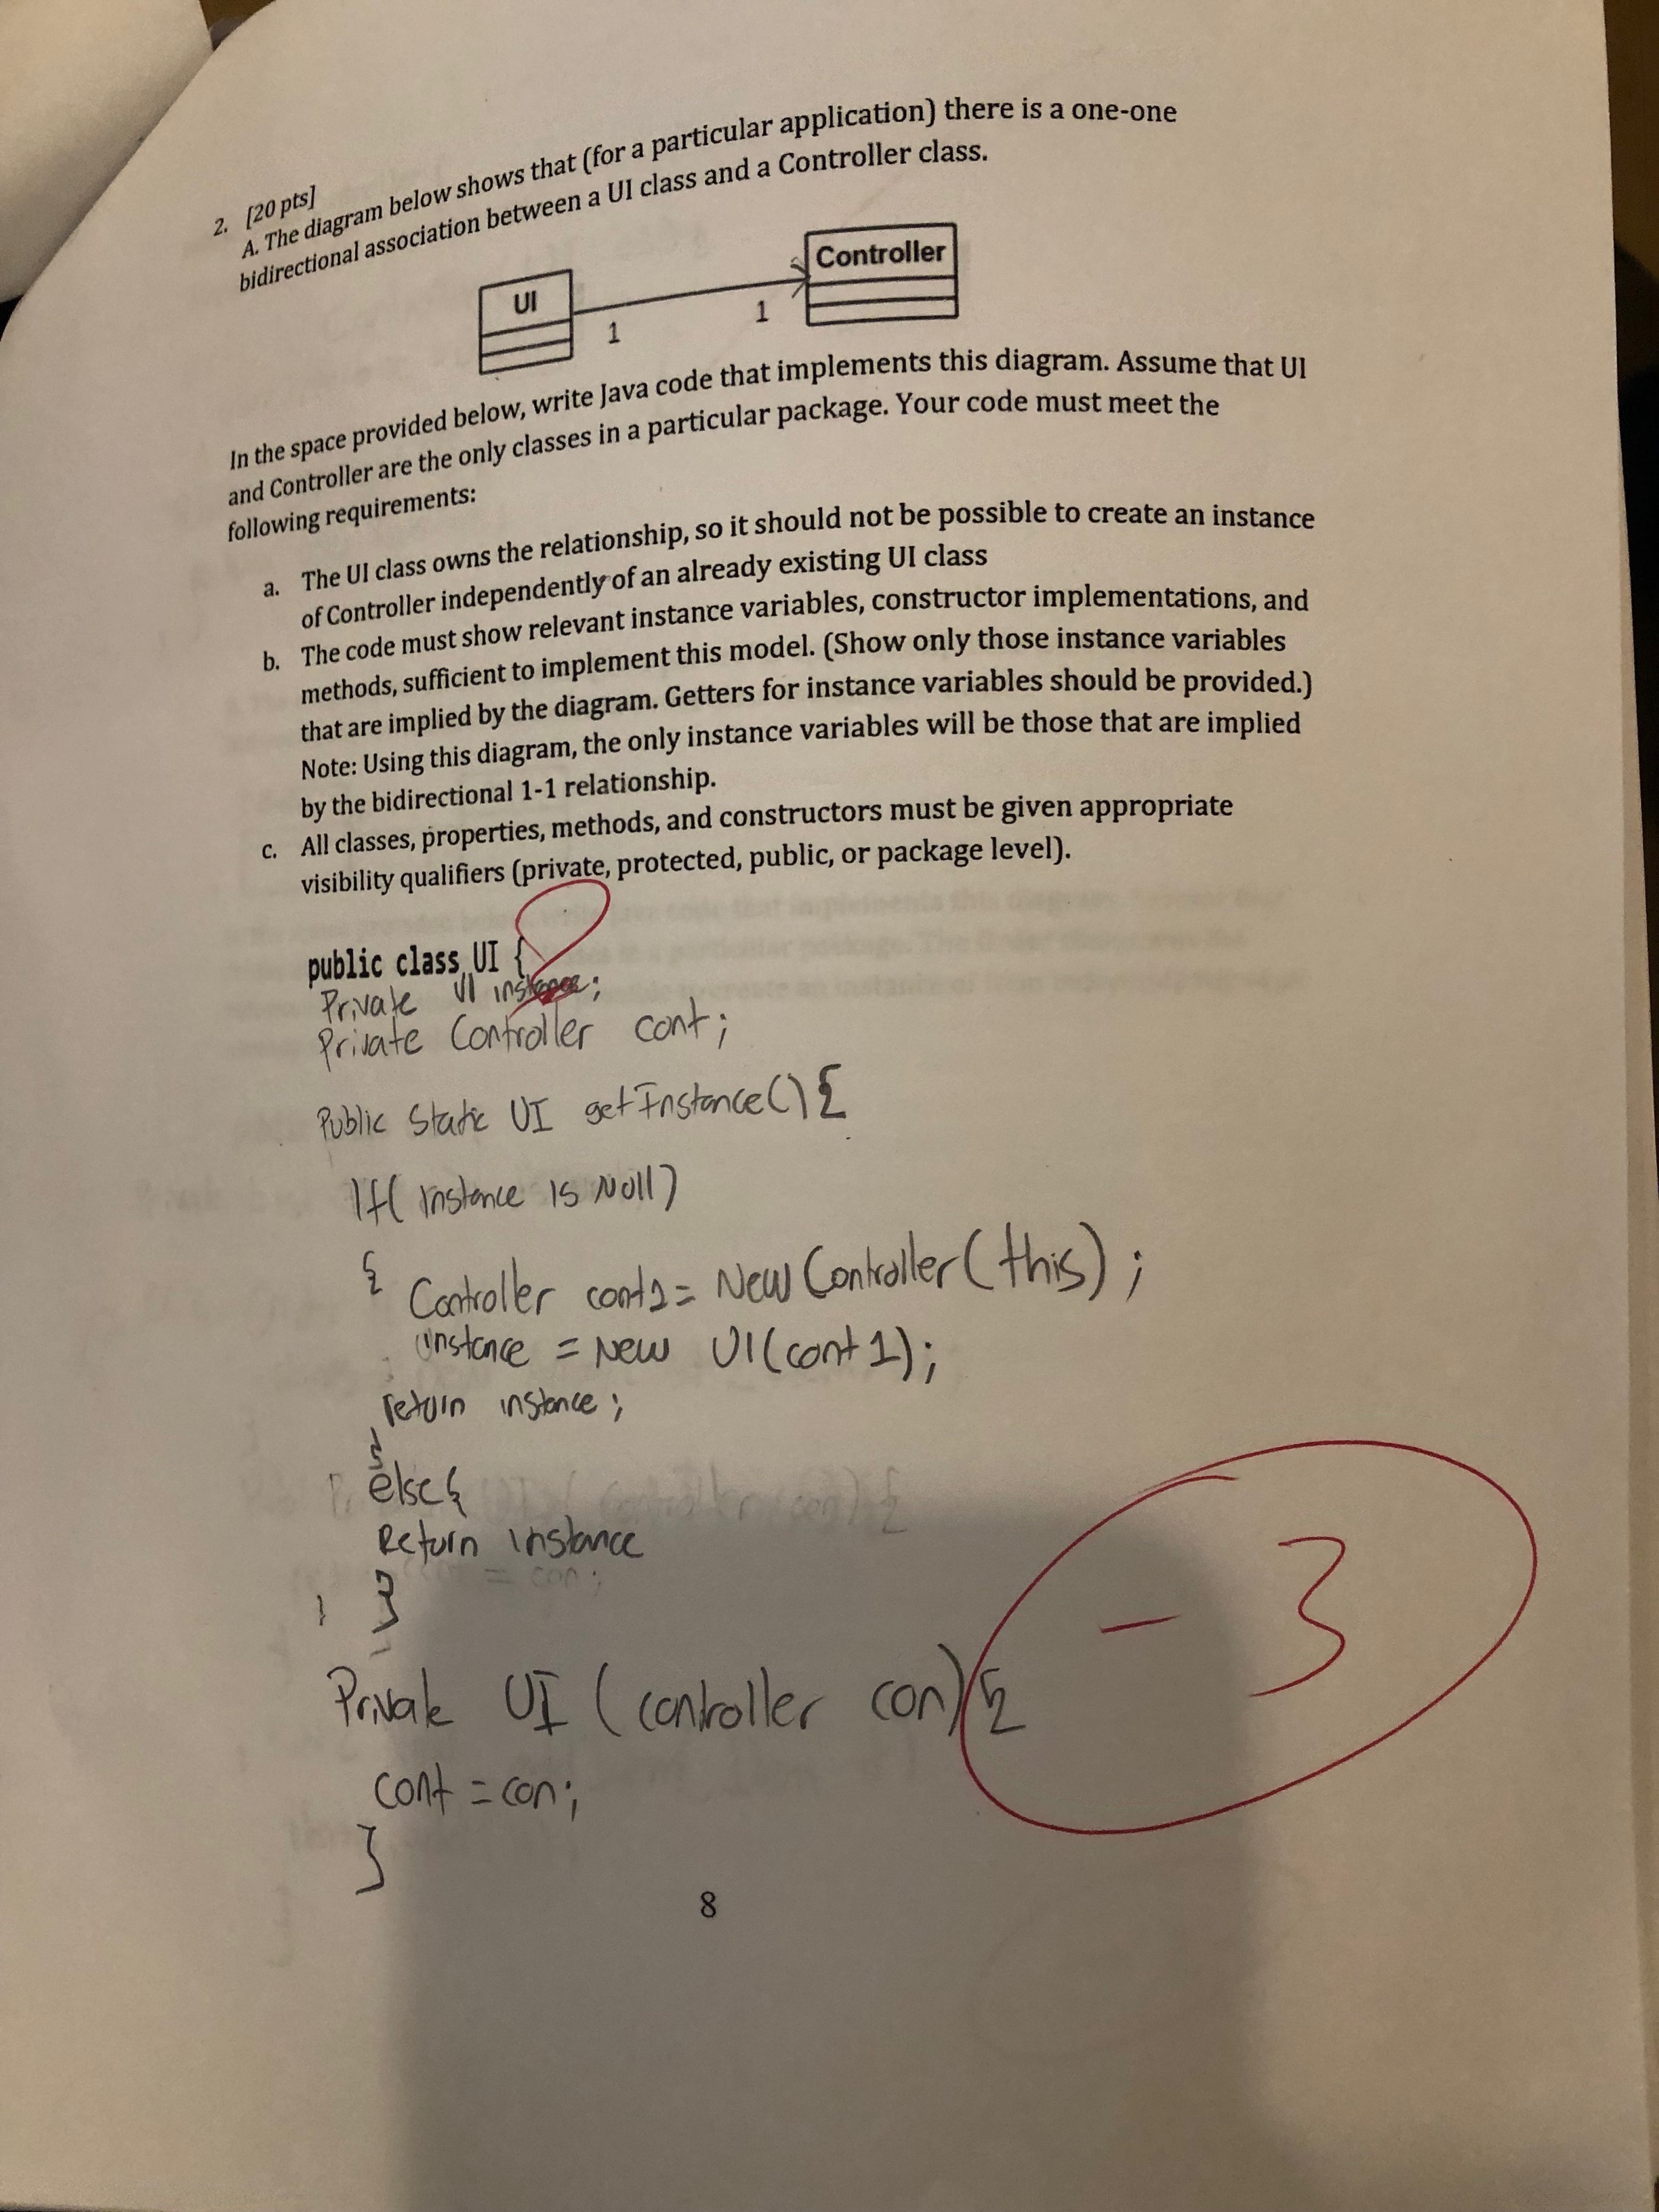 2. [20 pts]
A. The diagram below shows that (for a particular application) there is a one-one
bidirectional association between a UI class and a Controller class.
UI
Controller
1
1
In the space provided below, write Java code that implements this diagram. Assume that UI
and Controller are the only classes in a particular package. Your code must meet the
following requirements:
a. The UI class owns the relationship, so it should not be possible to create an instance
of Controller independently of an already existing UI class
b. The code must show relevant instance variables, constructor implementations, and
methods, sufficient to implement this model. (Show only those instance variables
that are implied by the diagram. Getters for instance variables should be provided.)
Note: Using this diagram, the only instance variables will be those that are implied
by the bidirectional 1-1 relationship.
c. All classes, properties, methods, and constructors must be given appropriate
visibility qualifiers (private, protected, public, or package level).
public class UI {
Private UI instance;
Private Controller cont;
Public Static UI getInstance() {
If( instance is Null)
{ Controller cont1 = New Controller( this);
instance = New UI(cont 1);
return instance;
}
else{
Return instance
}
Private UI ( controller con) {
cont = con;
}
- 3
8